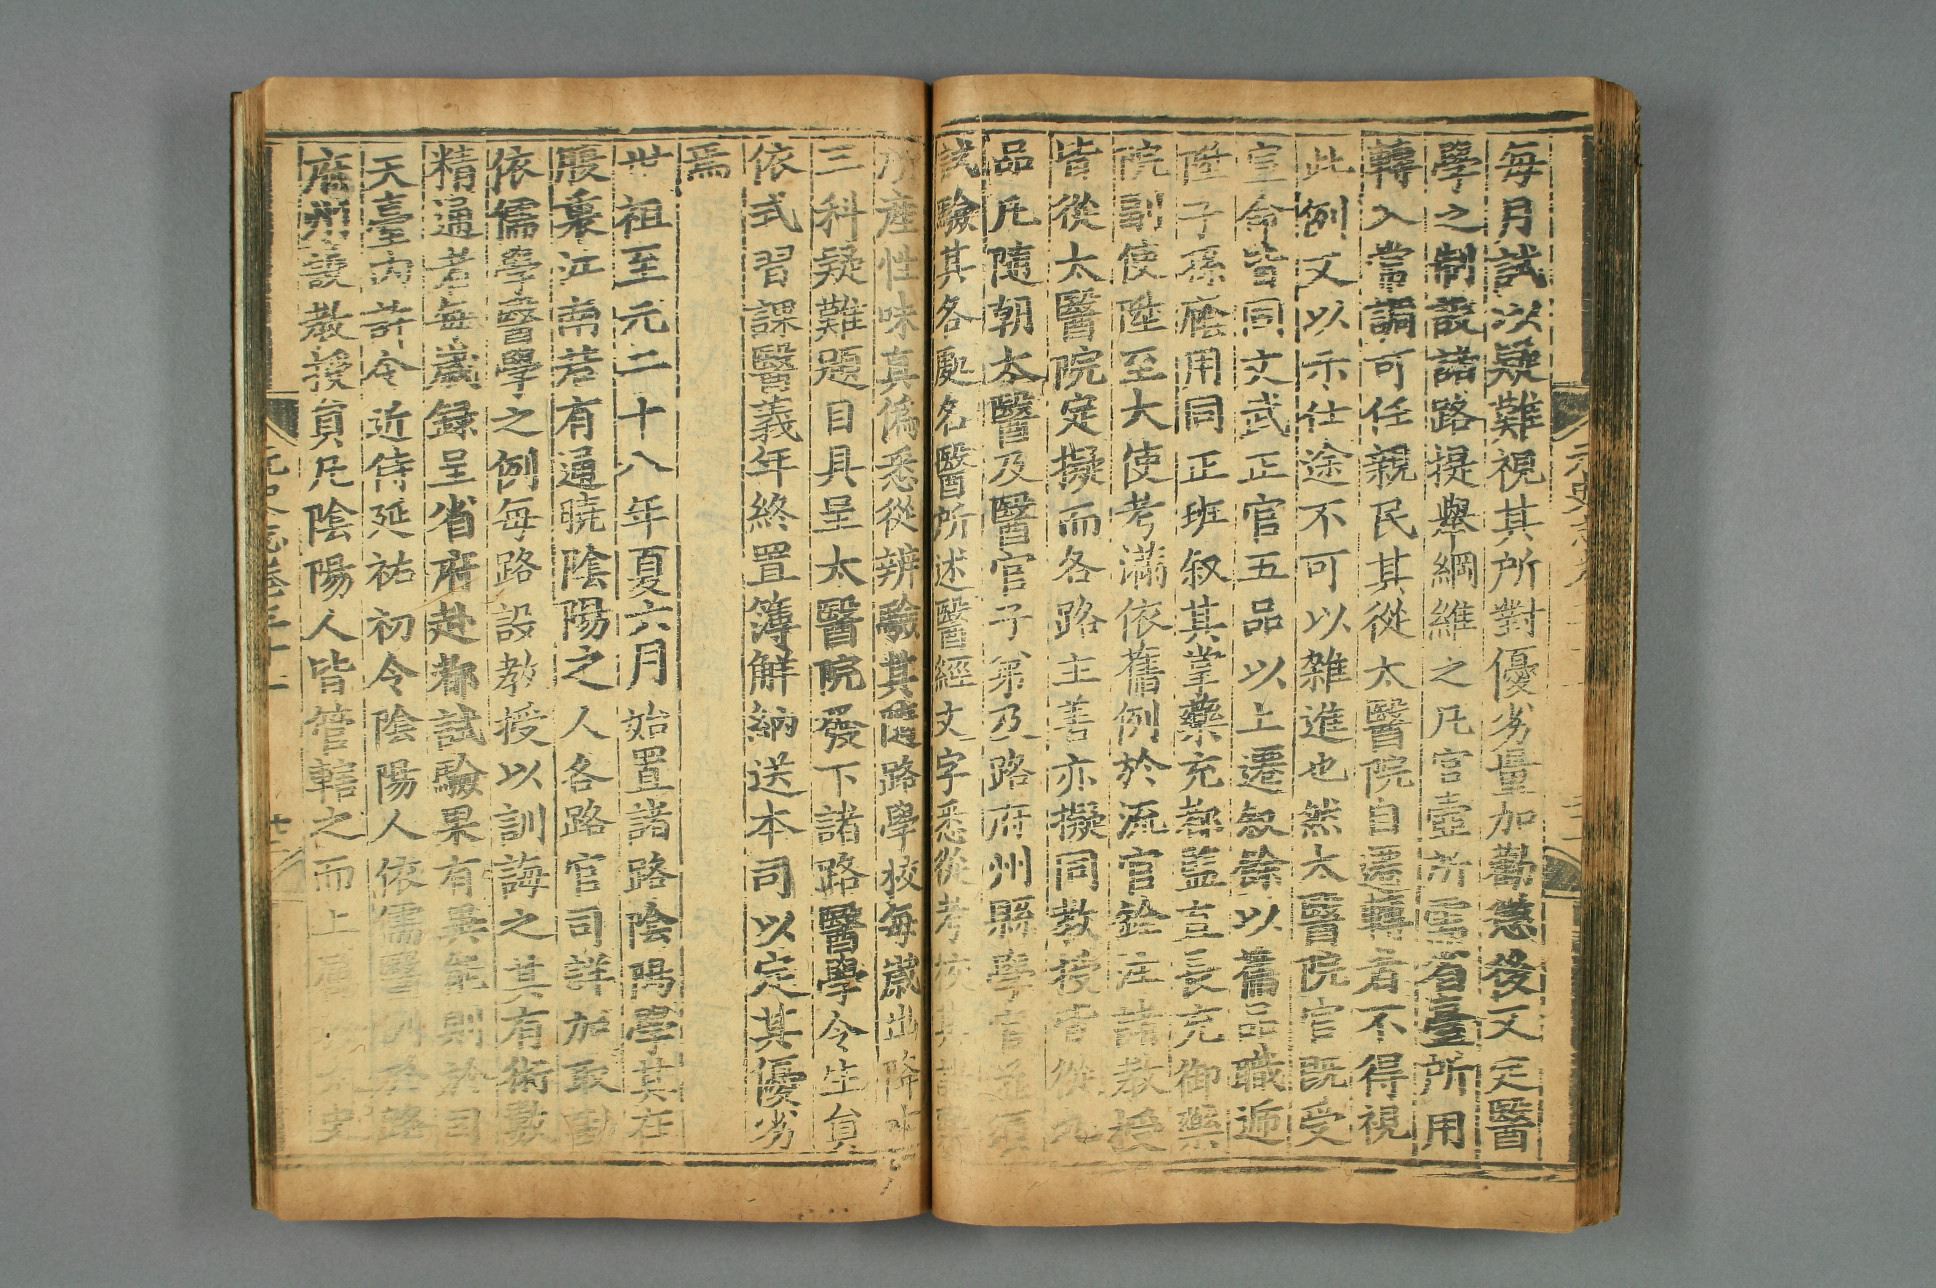 每月試以疑難視其所對優劣量加勸懲後又定醫
學之制設諸路提舉綱維之凡官壼所需省臺所用
轉入常調可任親民其從太醫院自遷轉者不得視
此例又以示仕途不可以雜進也然太醫院官旣受
宣命皆同文武正官五品以上遷叙餘以舊品職遞
陞子孫廕用同正班叙其掌藥充都監直長充御藥
院副使陞至大使考滿依舊例於流官銓注諸教授
皆從太醫院定擬而各路主善亦擬同教授皆從九
品凡隨朝太醫及醫官子弟及路府州縣學官並須
試驗其各處名醫所述醫經文字悉從考校其諸藥
所產性味真偽悉從辨驗其隨路學校每歲出降十
三科疑難題目具呈太醫院發下諸路醫學令生員
依式習課醫義年終置簿解納送本司以定其優劣
焉
世祖至元二十八年夏六月始置諸路陰陽學其在
腹裏江南若有通曉陰陽之人各路官司詳加取勘
依儒學醫學之例每路設教授以訓誨之其有術數
精通者每歲録呈省府赴都試驗果有異能則於司
天臺內許令近侍延祐初令陰陽人依儒醫例於路
府州設教授員凡陰陽人皆管轄之而上屬 史
元史志卷三十一 十二